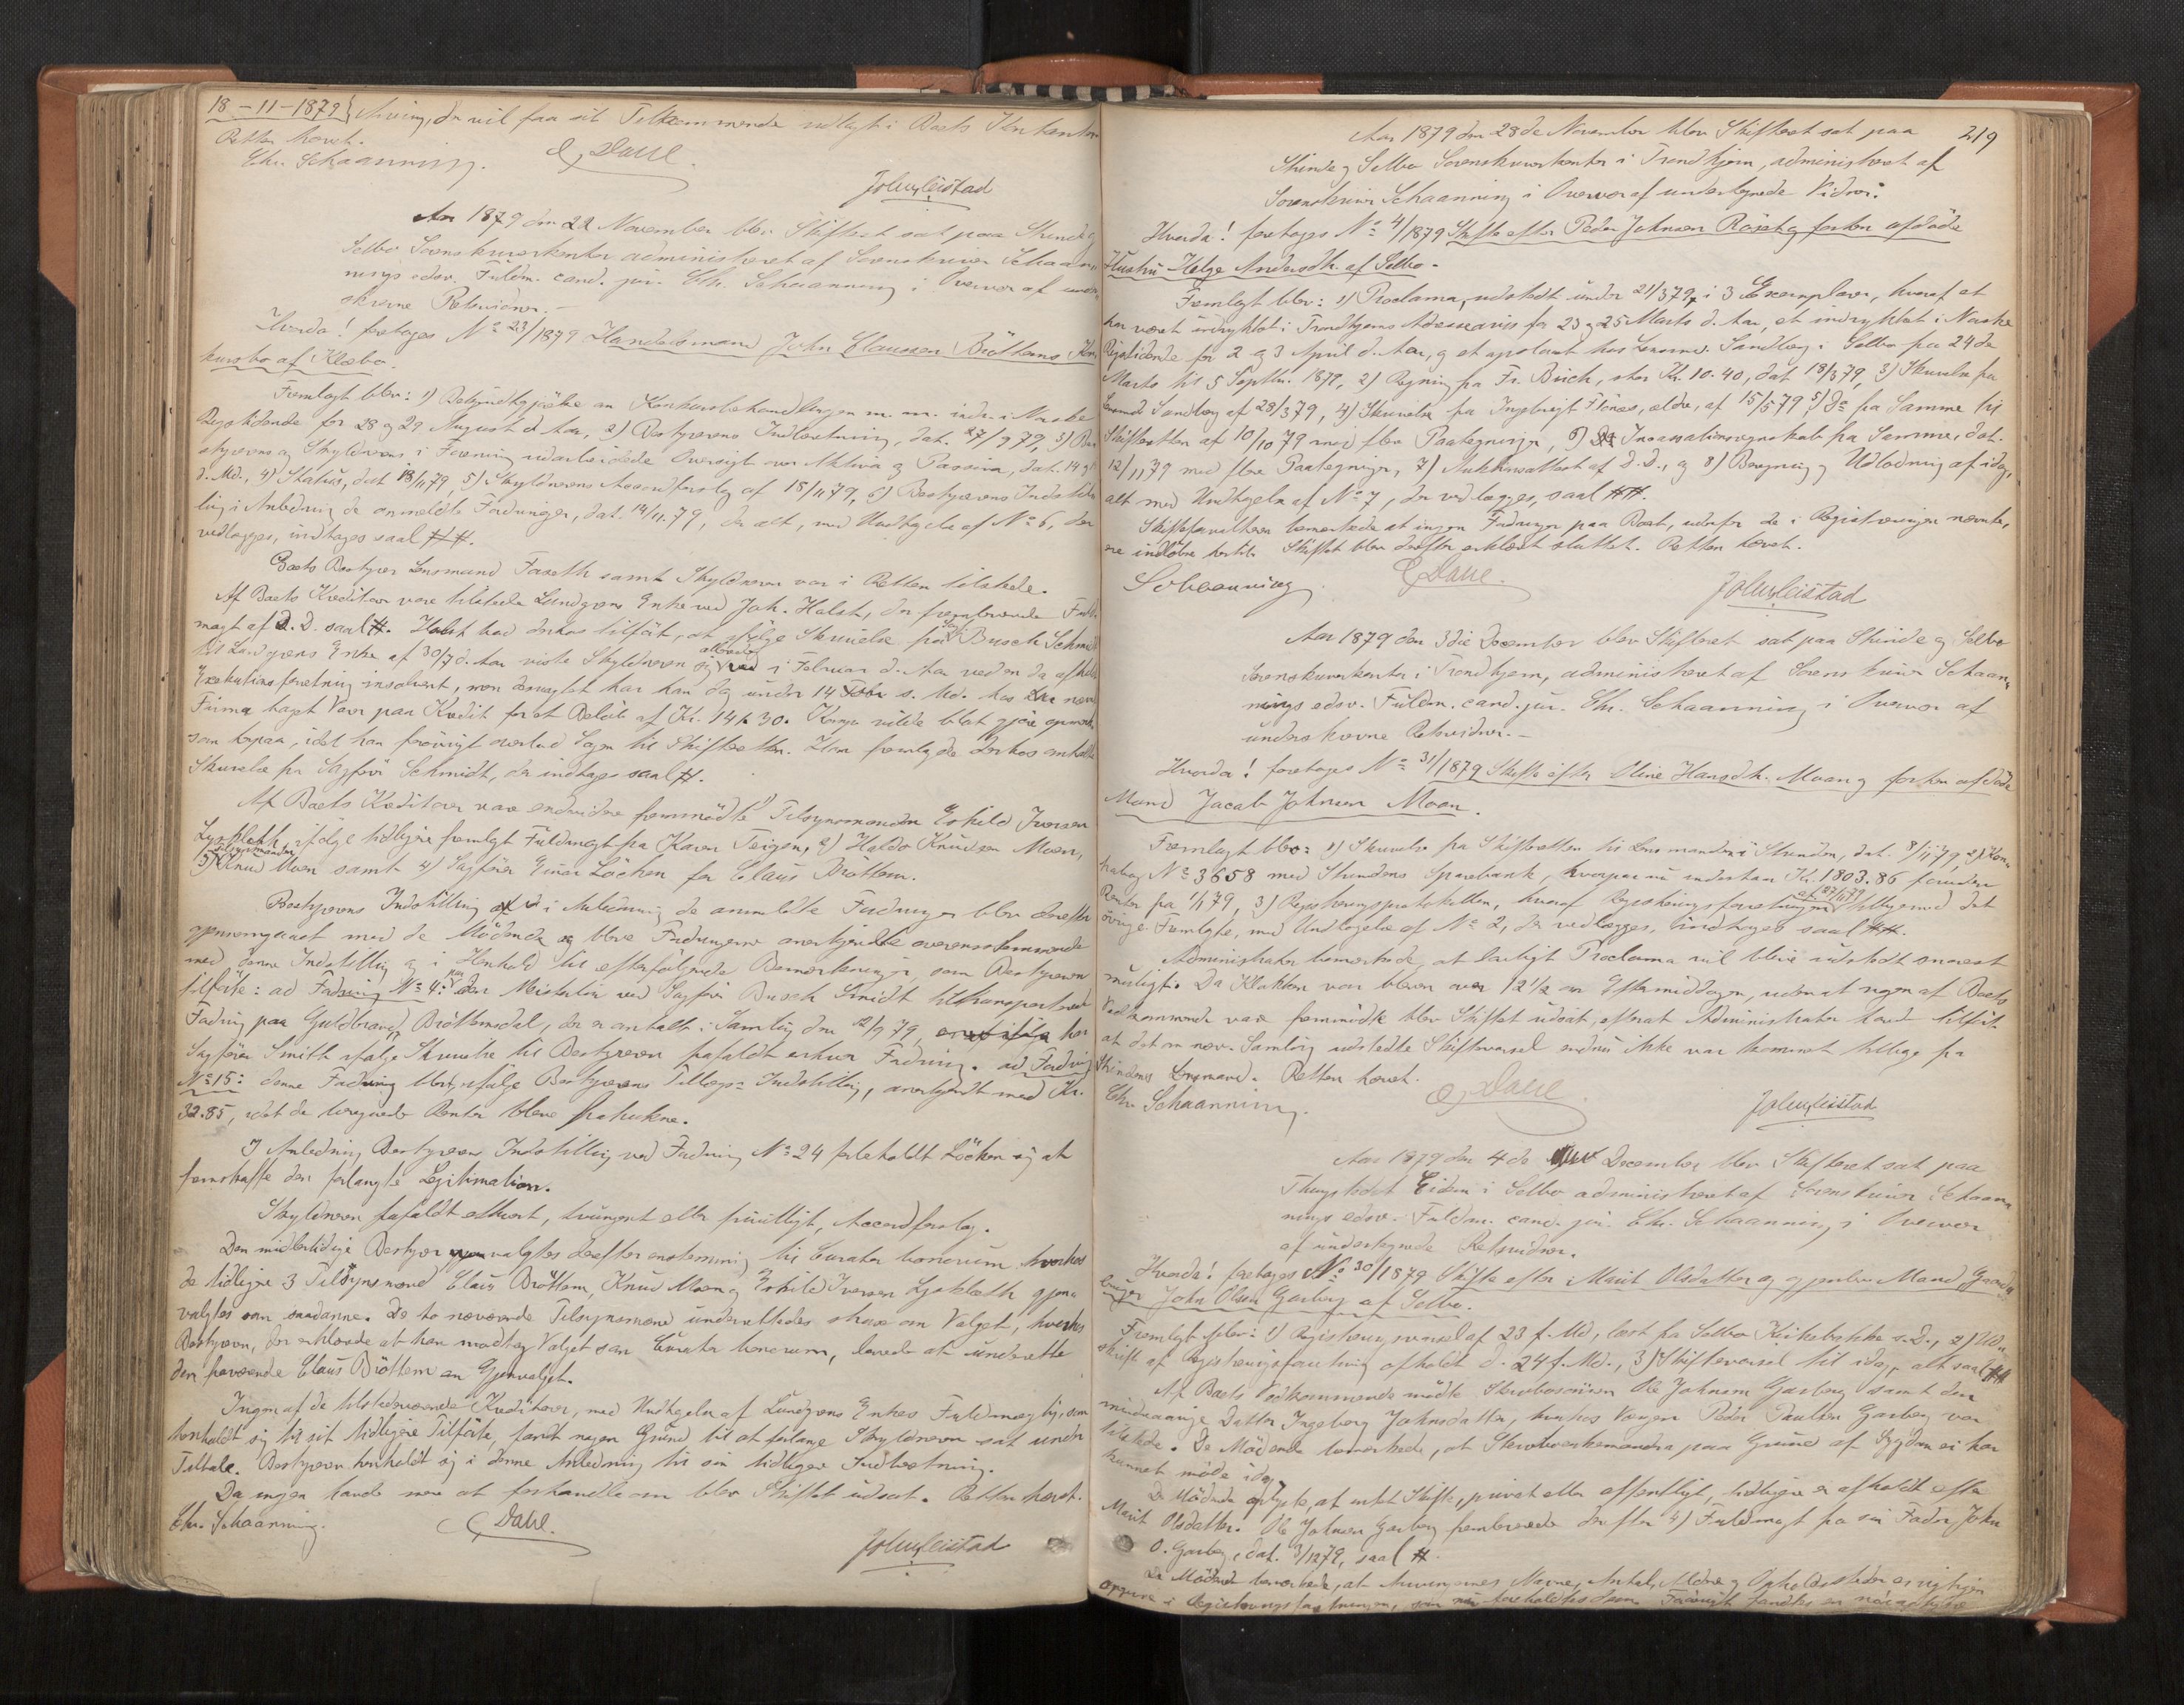 18-11-1879 Arving, der vil faa sit Tilkommende udlagt i Boets
Retten hævet.
Chr. Schaanning. E Dahl.
John Leistad
Aar 1879 den 22 November blev Skifteret sat paa Strinde og
Selbo Sorenskriverkontor administreret af Sorenskriver Schaan-
nings edsv. Fuldm. cand. jur. Chr. Schaanning i Overvær af under-
skrevne Retsvidner. -
Hvorda! foretages No 23/1879 Handelsmand John Claussen Bröttems Kon-
kursbo af Klæbo.
Fremlagt blev: 1) Bekjendtgjørelse om Konkursbehandlingen m. m. indr. i Norske
Rigstidende for 28 og 29 August d. Aar, 2) Bestyrerens Indberetning, dat. 27/9 79, 3) Be-
styrerens og Skyldnerens i Forening udarbeidede Oversigt over Aktiva og Passiva, dat. 14
d. Md., 4) Status, dat 18/11 79, 5) Skyldnerens Accordforslag af 18/11 79, 6) Bestyrerens Indstil-
ling i Anledning de anmeldte Fordringer, dat. 14/11.79, der alt, med Undtagelse af No 6, der
vedlægges, indtages saal ##.
Boets Bestyrer Lensmand Faseth samt Skyldneren var i Retten tilstede.
Af Boets Kreditorer vare tilstede Lundgrens Enke ved Joh. Halst, der fremleverede Fuld-
magt af D. D. saal #. Halst bad derhos tilført, at ifølge Skrivelse fra Sagf Busch Schmidt
til Lundgrens Enke af 30/7 d. Aar viste Skyldneren sig allerede i Februar d. Aar ved en da afholdt
Executionsforretning insolvent, men desuagtet har han dog under 14 Febr s. Md. hos
Firma taget Varer paa Kredit for et Beløb af Kr. 14 30. vilde blot gjøre opmærk-
som herpaa, idet han forøvrigt overlod Sagen til Skifteretten. Han fremlagde derhos omhandlede
Skrivelse fra Sagfører Schmidt, der indtages saal #.
Af Boets Kreditorer vare endvidere fremmødte 1) Tilsynsmanden Eskild Iversen
Lysklæth, ifølge tidligere fremlagt Fuldmagt fra Karen Teigen, 2) Haldo Knudsen Moen,
3) Tilsynsmanden Knud Moen samt 4) Sagfører Einar Löchen for Claus Bröttem.
Bestyrerens Indstilling i Anledning de anmeldte Fordringer blev derefter
gjennemgaaet med de Mödende og bleve Fordringerne anerkjendte overensstemmende
med denne Indstilling og i Henhold til efterfølgende Bemærkninger, som Bestyreren
tilførte: ad Fordring No 4: den Michelsen ved Sagfører Busch Smidt tiltransporterede
Fordring paa Guldbrand Bröttemsdal, der er omtalt i Samling den 12/9 79, har
Sagfører Smith ifølge Skrivelse til Bestyreren frafaldt enhver Fordring. ad Fordring
No 15: denne Fordring blev, ifølge Bestyrerens Tillægs-Indstilling, anerkjendt med Kr.
32.85, idet de beregnede Renter bleve frastrukne.
I Anledning Bestyrerens Indstilling ved Fordring No 24 forbeholdt Löchen sig at
fremskaffe den forlangte Legitimation.
Skyldneren frafaldt ethvert, tvungent eller frivilligt, Accordforslag.
Den midlertidige Bestyrer valgtes derefter enstemmig til Curator bonorum hvorhos
de tidligere 3 Tilsynsmænd Claus Bröttem, Knud Moen og Eskild Iversen Lysklæth gjen-
valgtes som saadanne. De to nærværende Tilsynsmænd underrettedes strax om Valget, hvorhos
Bestyreren, der erklærede at han modtog Valget som Curator bonorum, lovede at underrette
den fraværende Claus Bröttem om Gjenvalget.
Ingen af de tilstedeværende Kreditorer, med Undtagelse af Lundgrens Enkes Fuldmægtig, som
henholdt sig til sit tidligere Tilførte, fandt nogen Grund til at forlange Skyldneren sat under
Tiltale. Bestyreren henholdt sig i denne Anledning til sin tidligere Indberetning.
Da ingen havde mere at forhandle om blev Skiftet udsat. Retten hævet.
Chr. Schaanning. E Dahl.
John Leistad
219
Aar 1879 den 28de November blev Skifteret sat paa
Strinde og Selbo Sorenskriverkontor i Trondhjem, administreret af
Sorenskriver Schaanning i Overvær af undertegnede Vidner:
Hvorda! foretages No 4/1879 Skifte efter Peder Johnsen Röset og forhen afdöde
Hustru Helge Andersdtr. af Selbo. -
Fremlagt blev: 1) Proclama, udstedt under 21/3 79, i 3 Exemplarer, hvoraf et
har været indrykket i Trondhjems Adresseavis for 23 og 25 Marts d. Aar, et indrykket i Norske
Rigstidende for 2 og 3 April d. Aar, og et opslaaet hos Lensmd. Sandberg i Selbo fra 24de
Marts til 5 Septbr. 1879, 2) Regning fra Fr. Brich, stor Kr. 10.40, dat 18/3 79, 3) Skrivelse fra
Lensmd Sandberg af 28/3 79, 4) Skrivelse fra Ingebrigt Flönes, ældre, af 15/5 79, 5) Do fra Samme til
Skifteretten af 10/10 79 med flere Paategninger, 6) Incassationsregnskab fra Samme, dat.
12/11 79 med flere Paategninger, 7) Auktionsattest af d.d., og 8) Beregning og Udlodning af idag,
alt med Undtagelse af No 7, der vedlægges, saal ##.
Skifteforvalteren bemærkede at ingen Fordringer paa Boet, udenfor de i Registreringen nævnte,
ere indløbne hertil. Skiftet blev derefter erklæret sluttet. Retten hævet.
Schaanning E Dahl. John Leistad
Aar 1879 den 3die December blev Skifteret sat paa Strinde og Selbo
Sorenskriverkontor i Trondhjem, administreret af Sorenskriver Schaan-
nings edsv. Fuldm. cand. jur. Chr. Schaanning i Overvær af
underskrevne Retsvidner. -
Hvorda! foretages No 31/1879 Skifte efter Oline Hansdtr. Moan og forhen afdöde
Mand Jacob Johnsen Moan.
Fremlagt blev: 1) Skrivelse fra Skifteretten til Lensmanden i Strinden, dat. 8/11 79, 2) Kon-
trabog No 3658 med Strindens Sparebank, hvorpaa nu indestaar Kr. 1803.86 foruden
Renter fra 1/1 79, 3) Registreringsprotokollen, hvoraf Registreringsforretningen af 27/11 79 tilligemed det
övrige Fremlagte, med Undtagelse af No 2, der vedlægges, indtages saal ##.
Administrator bemærkede, at lovligt Proclama vil blive udstedt snarest
muligt. Da Klokken var bleven over 12 1/2 om Eftermiddagen, uden at nogen af Boets
Vedkommende vare fremmødte blev Skiftet udsat, efterat Administrator havde tilført
at det om nærv. Samling udstedte Skiftevarsel endnu ikke var kommet tilbage fra
Strindens Lensmand. Retten hævet.
Chr. Schaanning. E Dahl. John Leistad
Aar 1879 den 4de December blev Skifteret sat paa
Thingstedet Eidem i Selbo administreret af Sorenskriver Schaan-
nings edsv. Fuldm. cand. jur. Chr. Schaanning i Overvær
af undertegnede Retsvidner.
Hvorda! foretages No 30/1879 Skifte efter Marit Olsdatter og gjenlev. Mand Gaard-
bruger John Olsen Garberg af Selbo.
Fremlagt blev: 1) Registreringsvarsel af 23 f. Md, læst fra Selbo Kirkebakke s.D., 2) Ud-
skrift af Registreringsforretning afholdt d. 24 f. Md., 3) Skiftevarsel til idag, alt saal ##
Af Boets Vedkommende mødte Skrivebosønnen Ole Johnsen Garberg samt den
mindreaarige Datter Ingeborg Johnsdatter, hvorhos Værgen Peder Paulsen Garberg var
tilstede. De Mödende bemærkede, at paa Grund af Sygdom ei har
kunnet möde idag.
De Mödende oplyste, at intet Skifte, privat eller offentligt, tidligere er afholdt efter
Marit Olsdatter. Ole Johnsen Garberg fremleverede derefter 4) Fuldmagt fra sin Fader John
O. Garberg, dat. 3/12 79, saal #.
De Mödende bemærkede, at Arvingernes Navne, Antal, Aldre og Opholdssteder er rigtigen
opgivne i Registreringsforretningen, som nu foreholdtes dem. Forövrigt fandtes